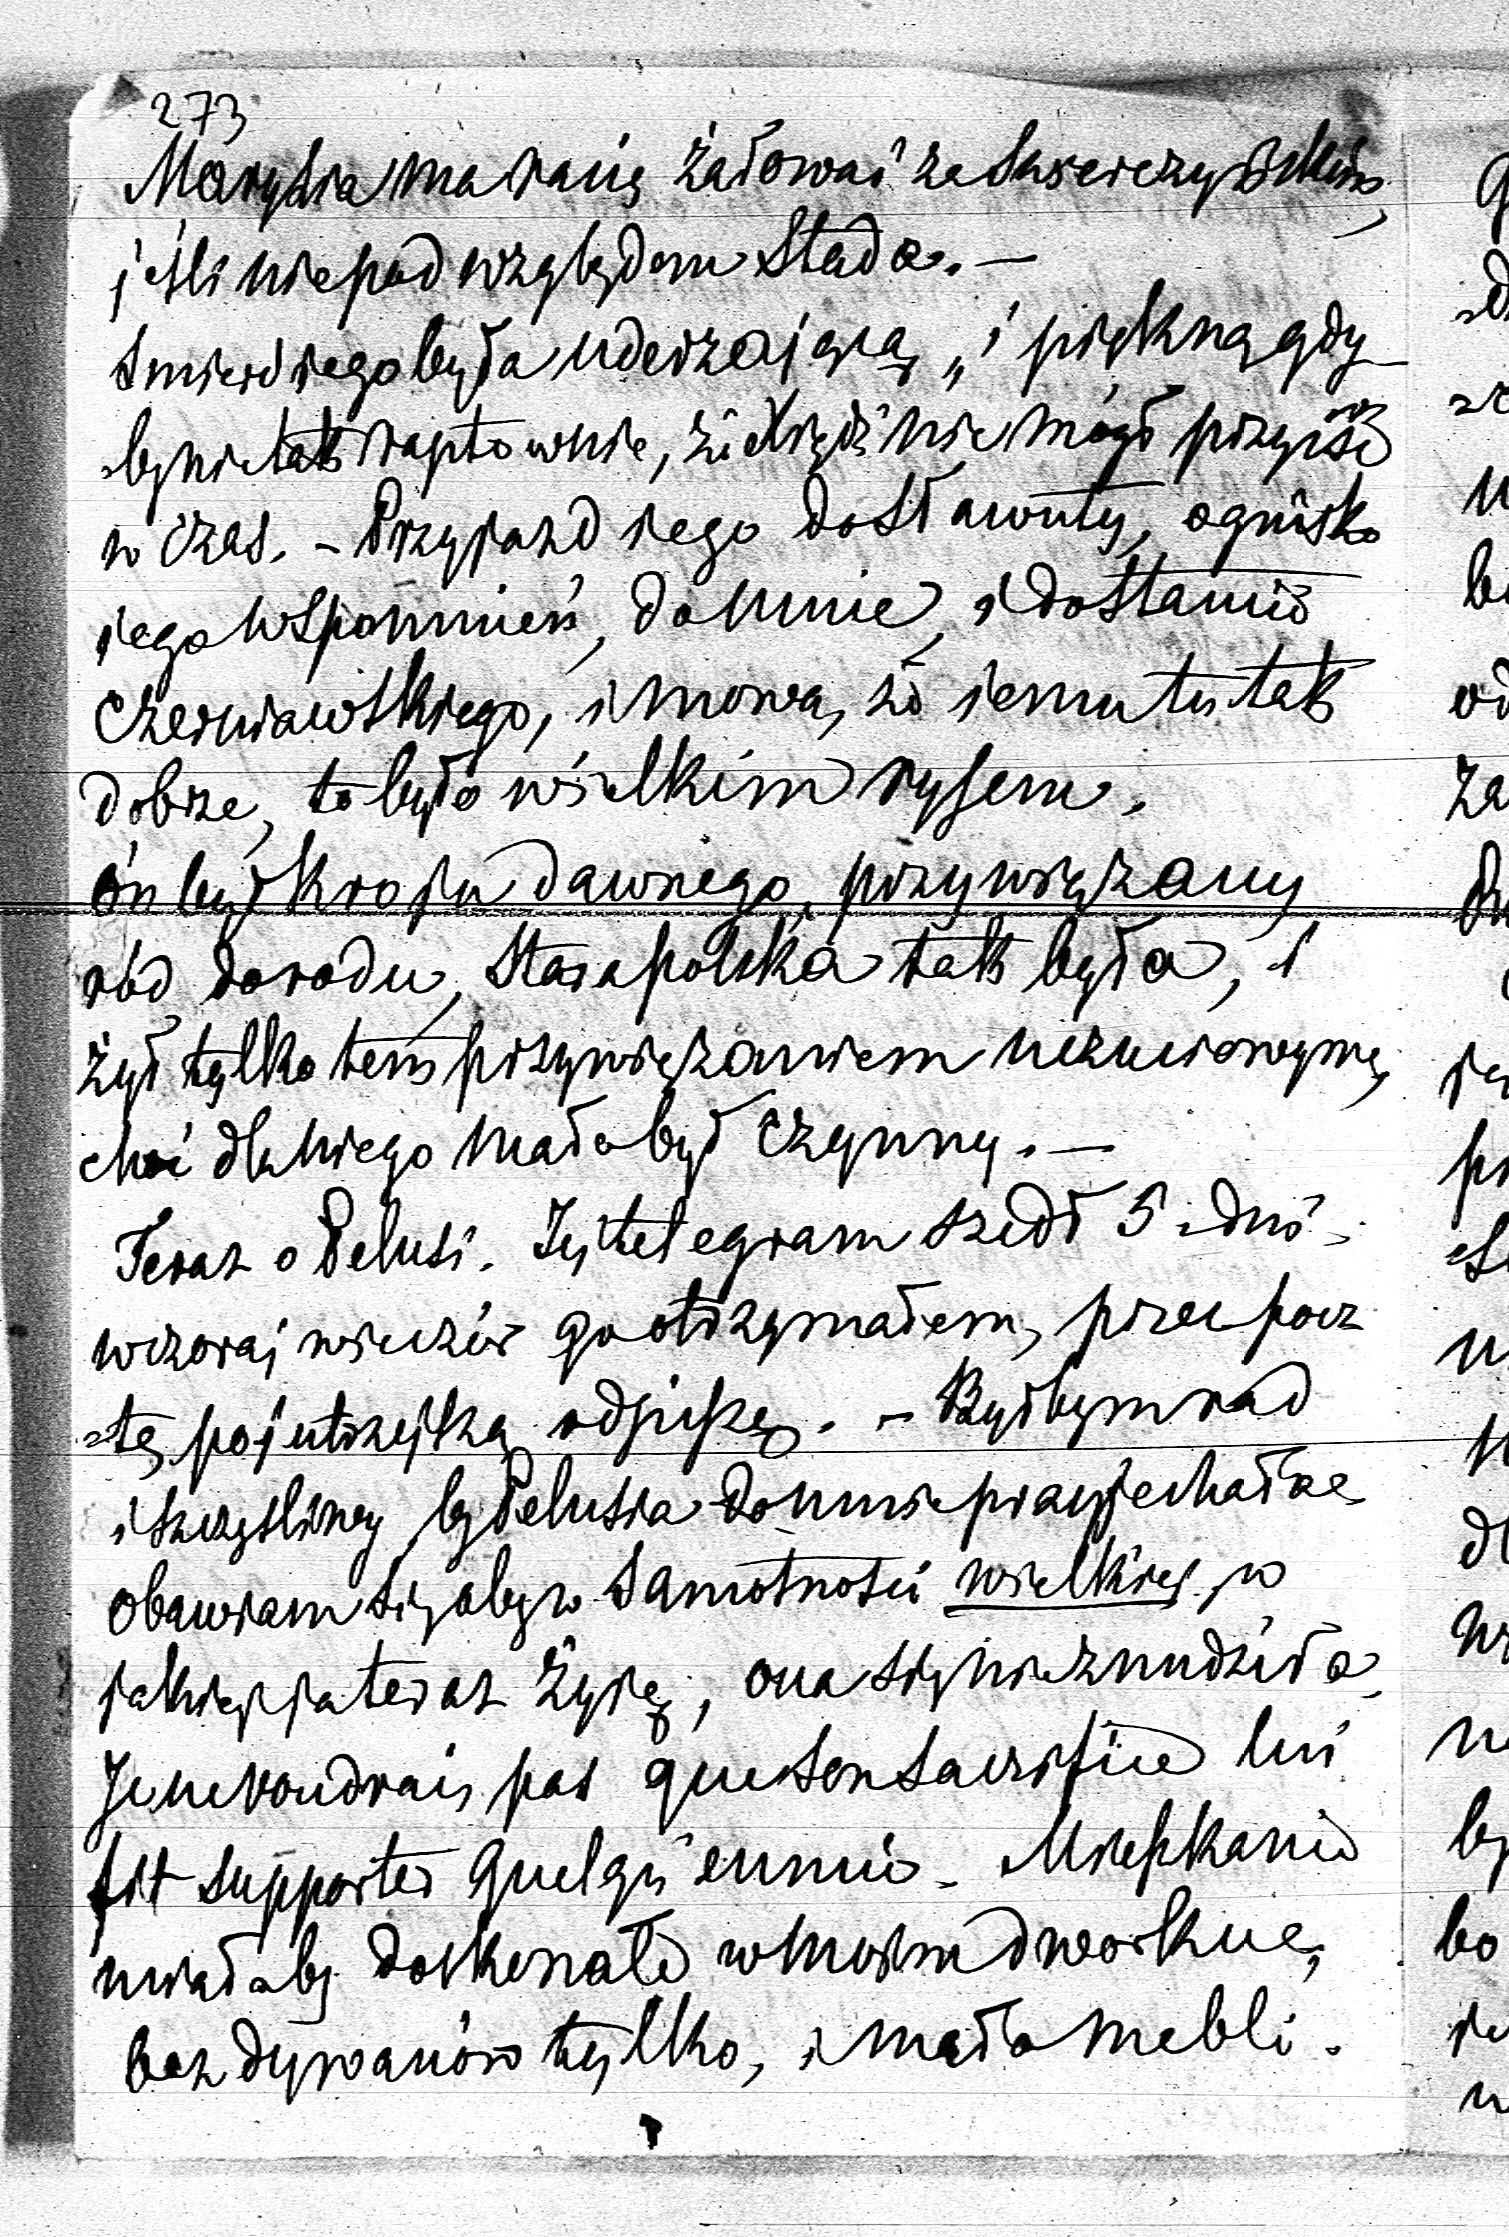 273
Marysia ma racię żałować za Skwierczyńskim,
jeśli nie pod względem Stada. —
Smierć iego była uderzaiącą, „i piękną gdy
by nie tak raptownie, że Xiądz nie mógł przyiść
w czas. – Przyjazd iego do Sławuty, ognisko
iego wspomnień, do mnie, i do Stanisł
Czerniawskiego, i mowa, że iemu tu tak
dobrze, to było wielkim rysem.
on był kroju dawnego, przywiązany
ród do rodu, Stara polska tak była, i
żył tylko tem przywiązaniem uczuciowym,
choć dla niego mało był czynny. —
Teraz o Pelusi. Jej telegram szedł 5 dni
wczoraj wieczór go otrzymałem, przez pocz
tę pojutrzejszą odpiszę. – Byłbym rad
i szczęśliwy by Pelusia do mnie przyjechała
obawiam się aby w samotności wielkiej w
jakiej ja teraz żyję, ona się nie znudziła.
Je ne voudrais pas que son sacrifice lui
fit supporter quelqu'ennui. Mieszkanie
miałaby doskonałe w moim dworku,
bez dywanów tylko, i mało mebli.